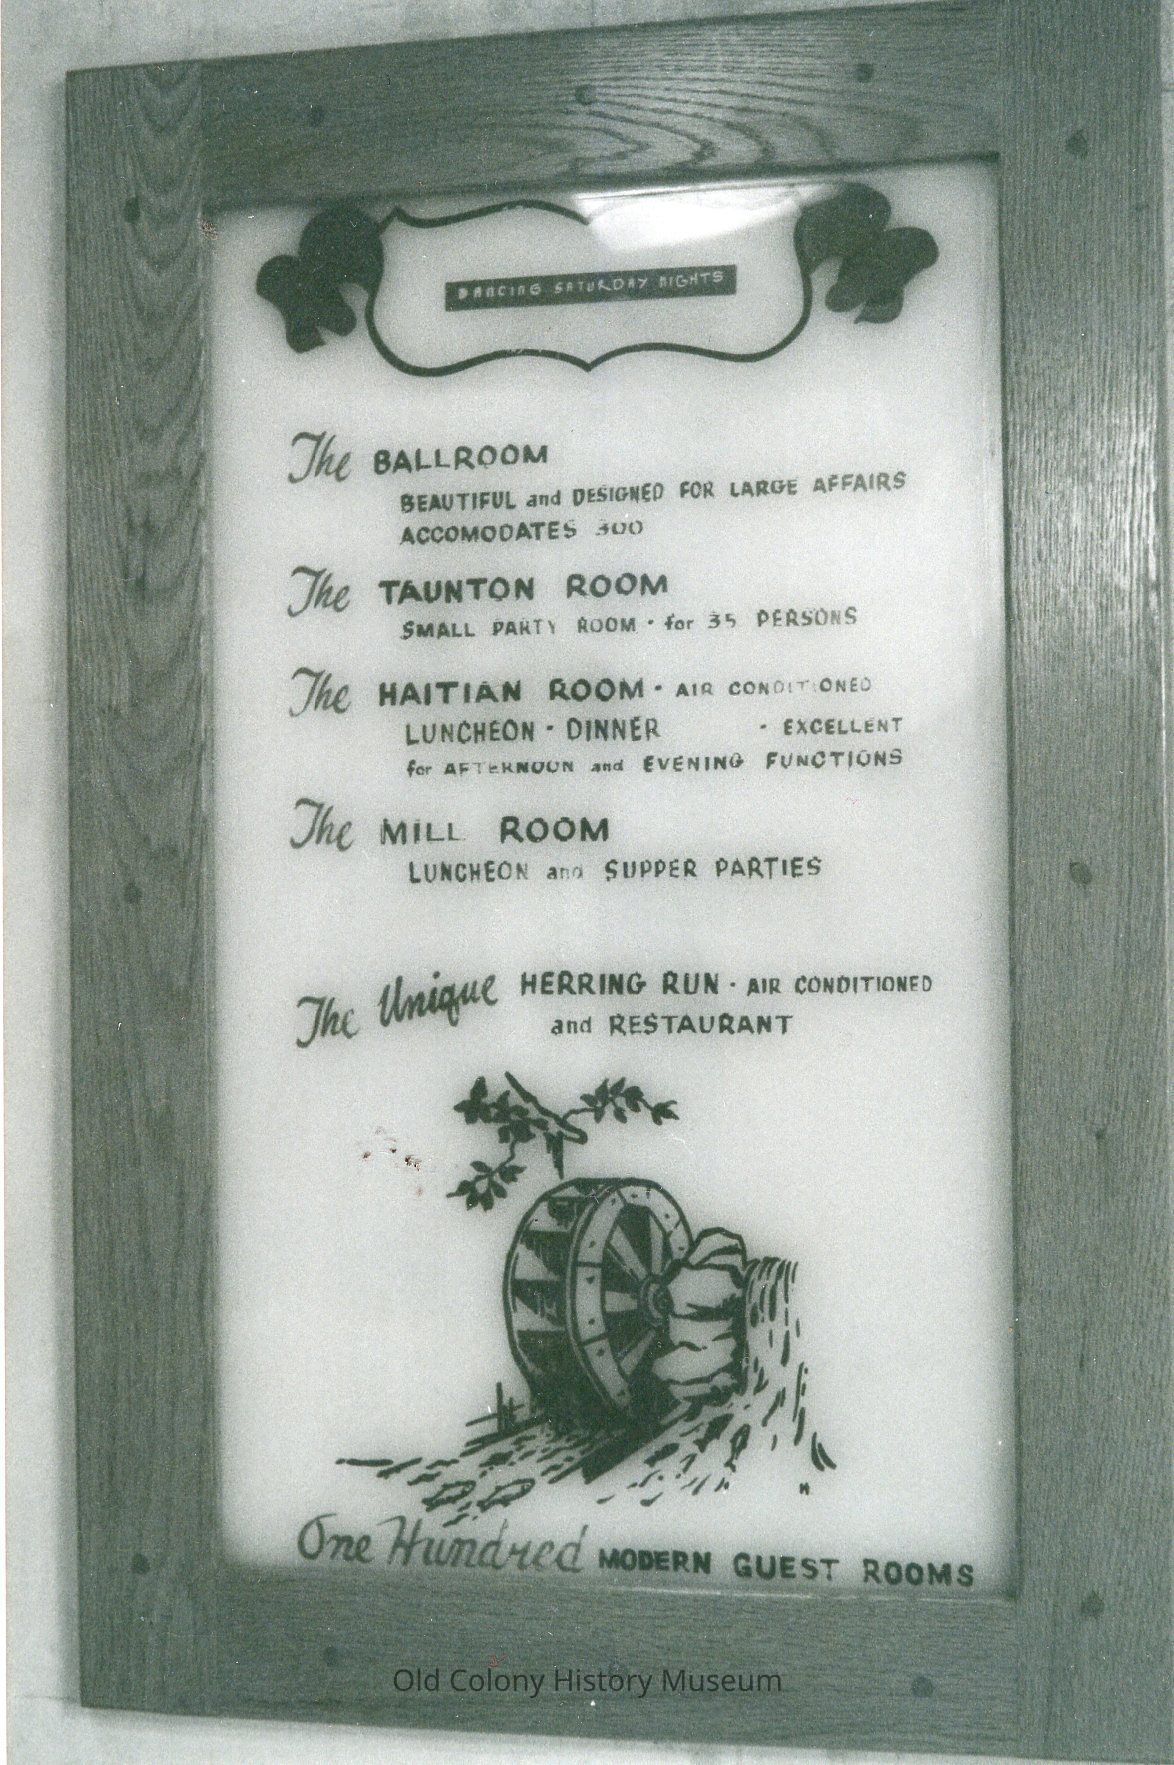 DANCING SATURDAY NIGHTS
The BALLROOM
BEAUTIFUL and DESIGNED FOR LARGE AFFAIRS
ACCOMODATES 300
The TAUNTON ROOM
SMALL PARTY ROOM · for 35 PERSONS
The HAITIAN ROOM · AIR CONDITIONED
LUNCHEON · DINNER · EXCELLENT
for AFTERNOON and EVENING FUNCTIONS
The MILL ROOM
LUNCHEON and SUPPER PARTIES
The Unique HERRING RUN · AIR CONDITIONED
and RESTAURANT
H
One Hundred MODERN GUEST ROOMS
Old Colony History Museum